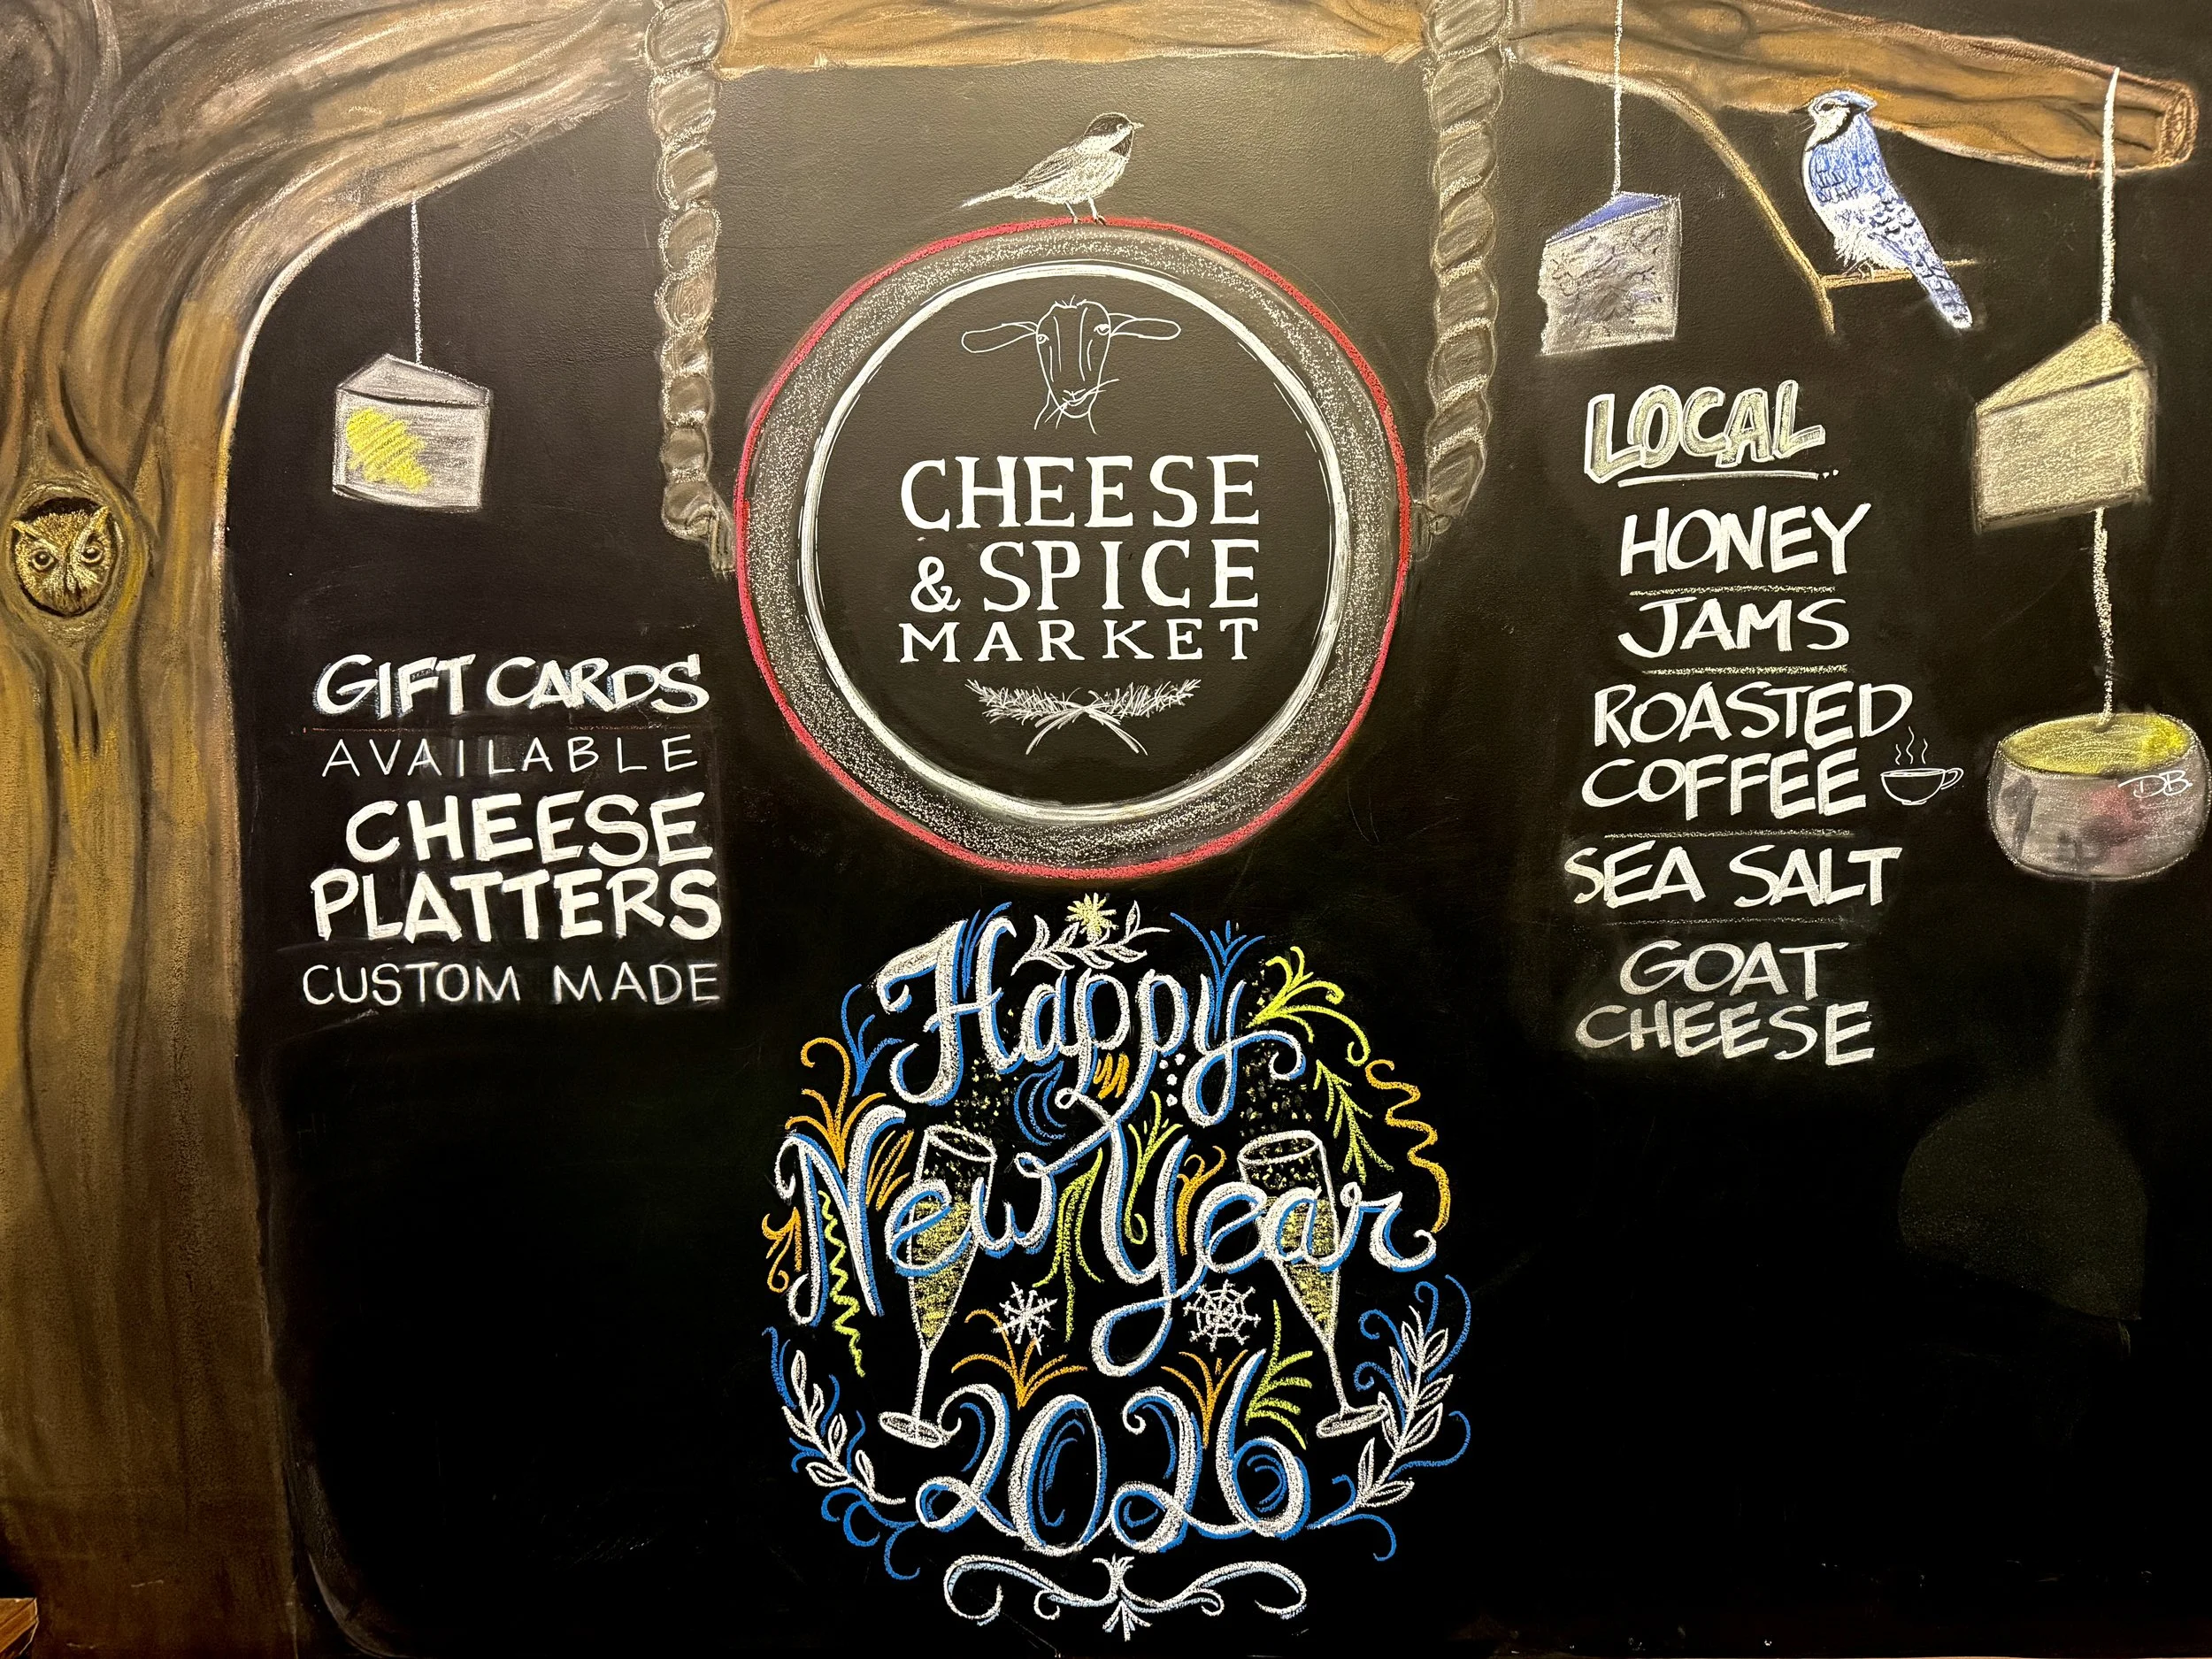 CHEESE
& SPICE
MARKET
GIFT CARDS
AVAILABLE
CHEESE
PLATTERS
CUSTOM MADE
LOCAL
HONEY
JAMS
ROASTED
COFFEE
SEA SALT
GOAT
CHEESE
DB
Happy
New Year
2026